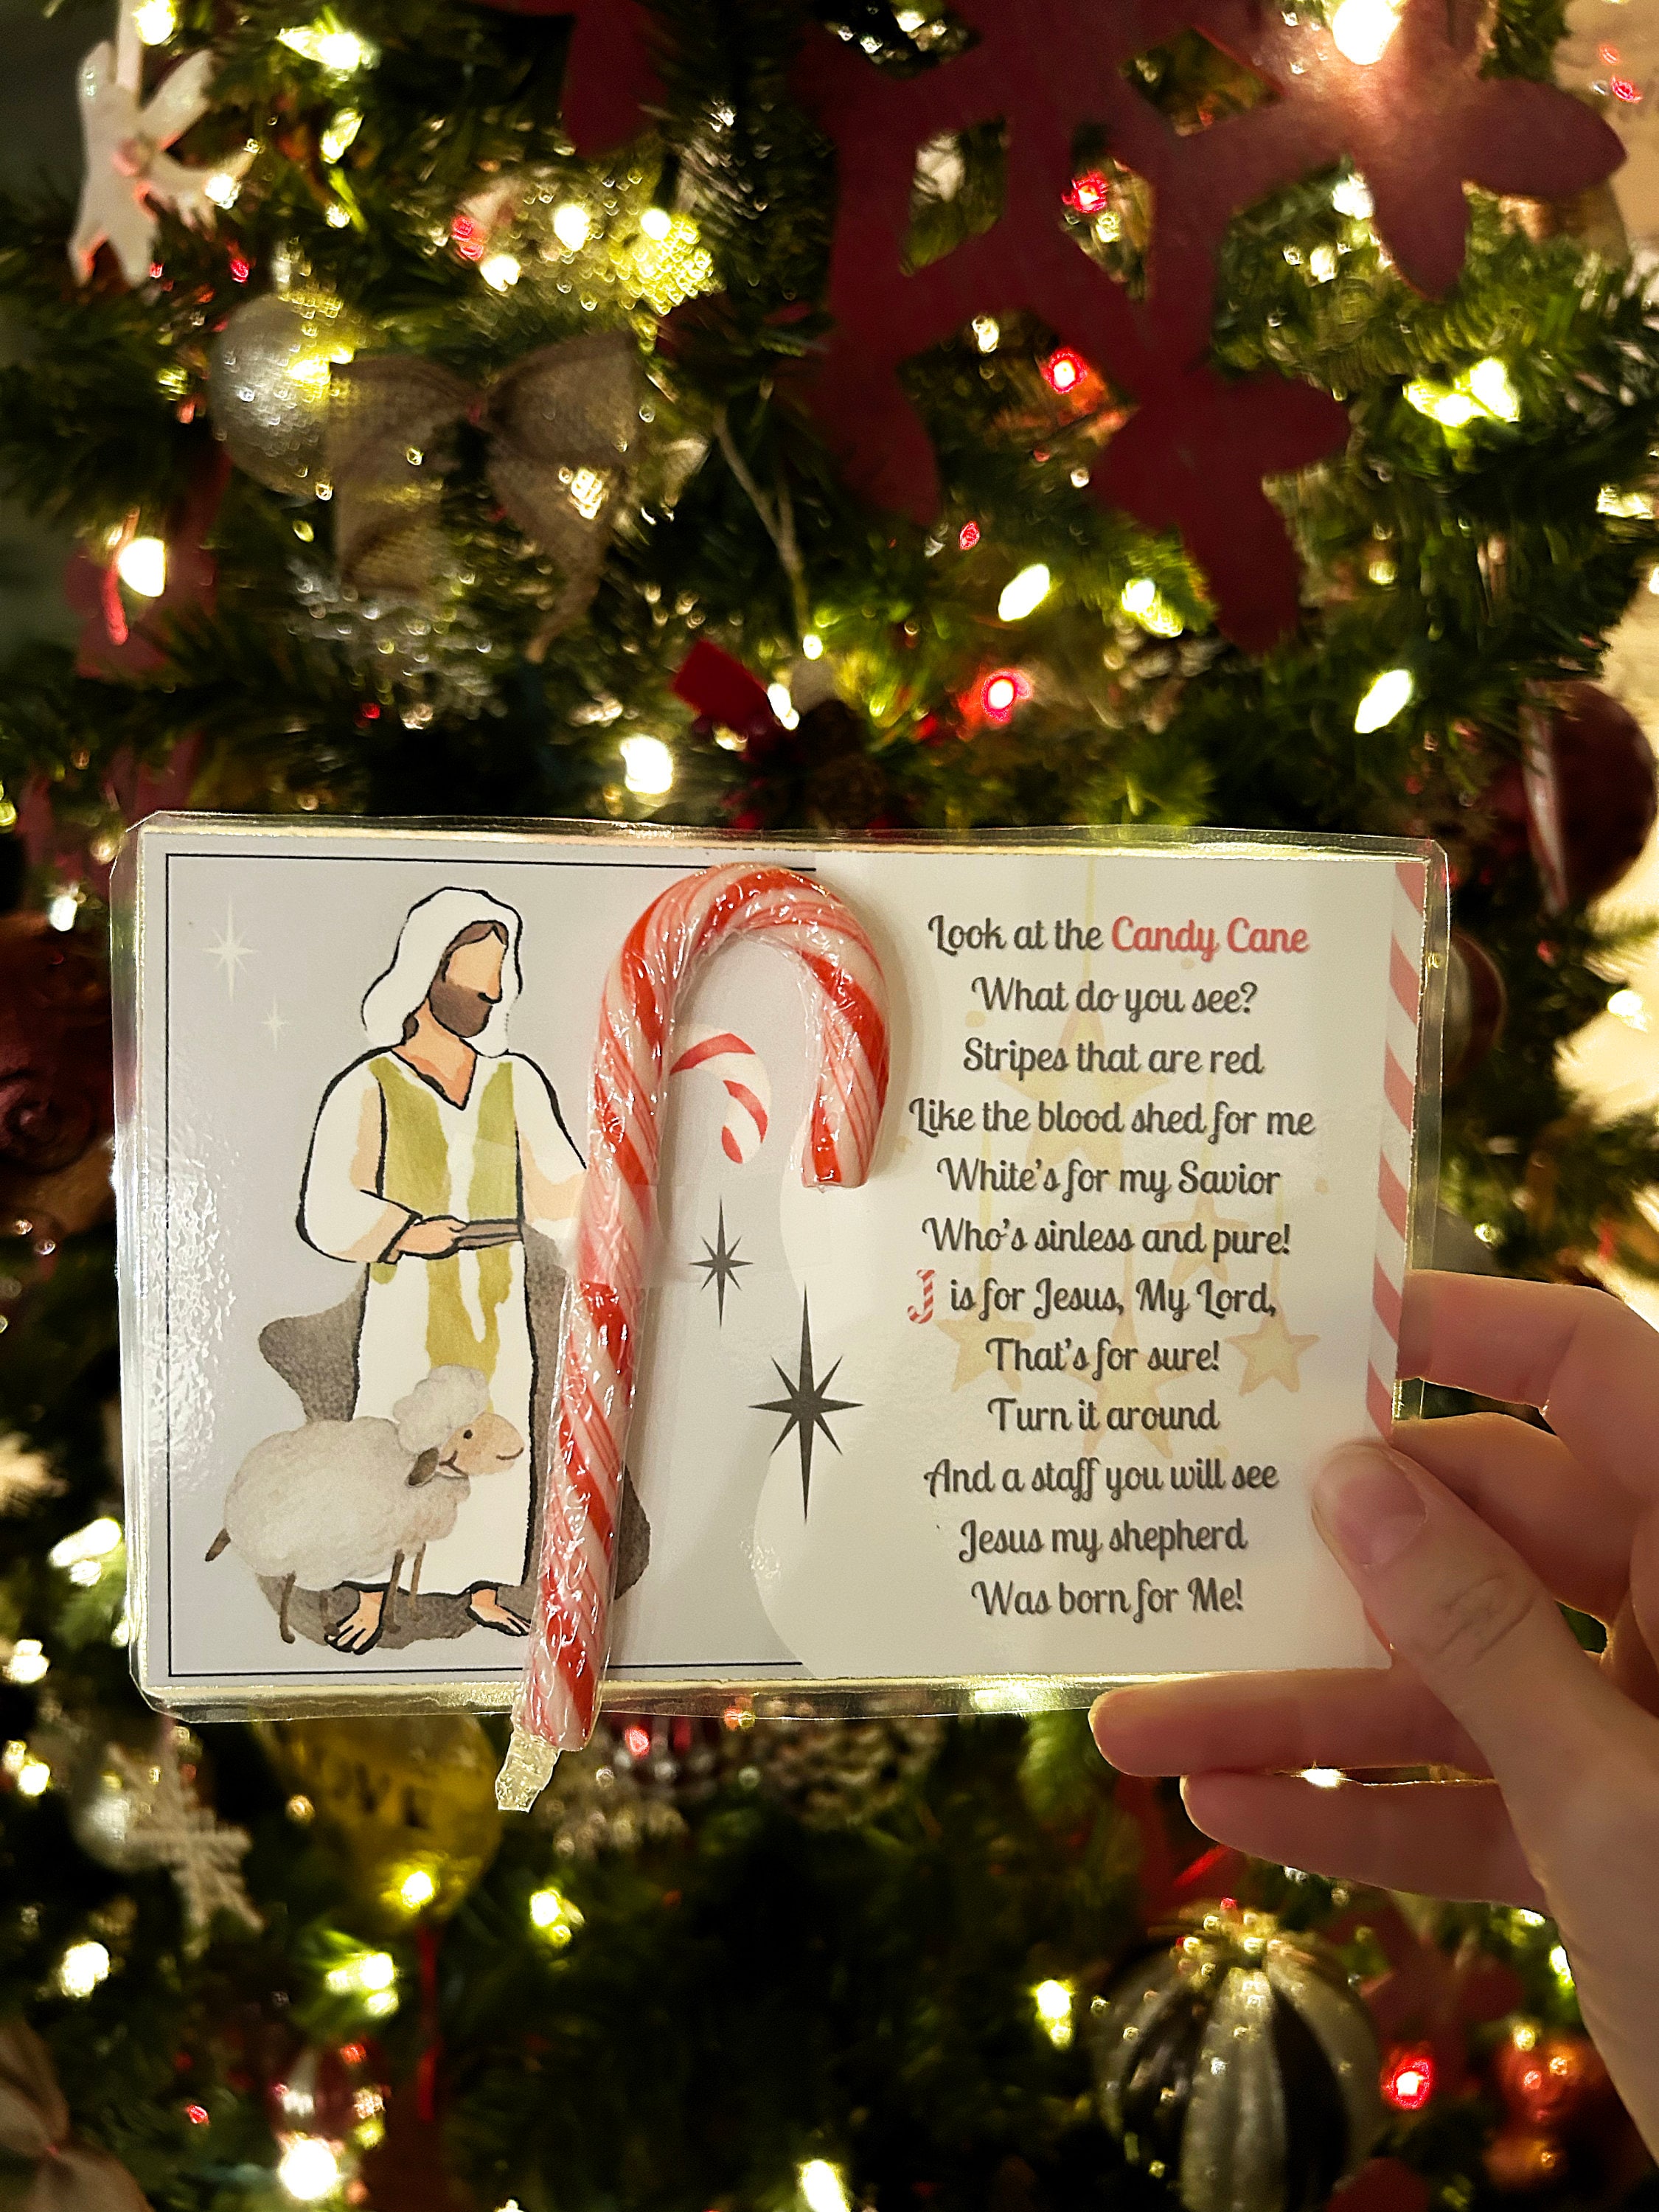 Look at the Candy Cane
What do you see?
Stripes that are red
Like the blood shed for me
White's for my Savior
Who's sinless and pure!
J is for Jesus, My Lord,
That's for sure!
Turn it around
And a staff you will see
Jesus my shepherd
Was born for Me!